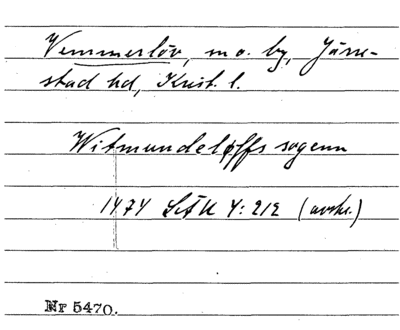 Vemmerlöv, sn o. by, Järre-
stad hd, Krist. l.
Witmundeløffs sogenn
1474 LÄU 4: 212 (avskr.)
Nr 5470.